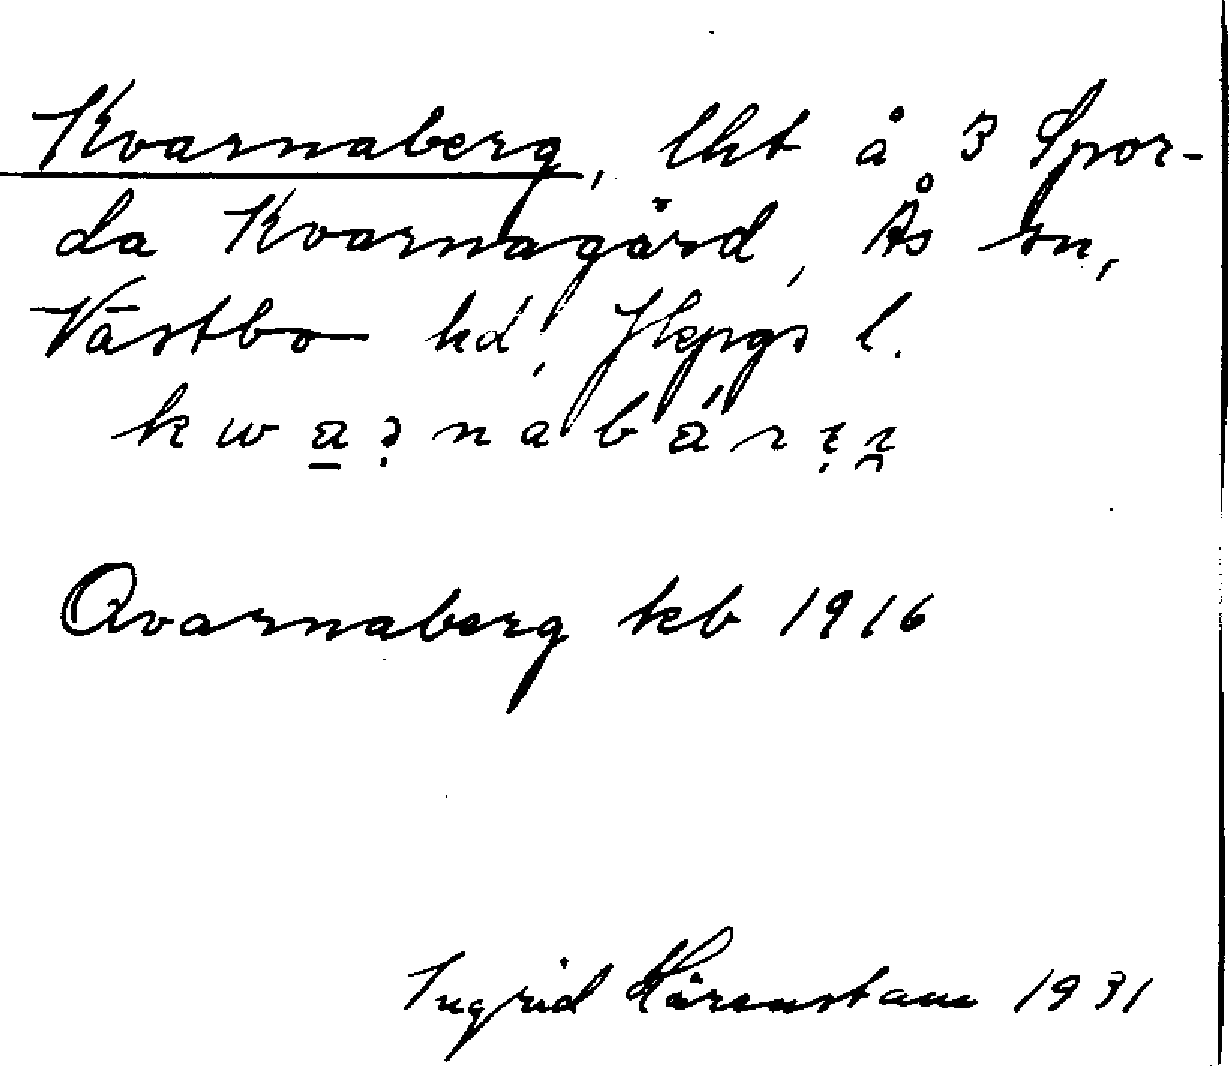 Kvarnaberg, lht å 3 Spor-
da Kvarnagård, Ås sn,
Västbo hd, Jkpgs l.
Qvarnaberg kb 1916
Ingrid Härenstam 1931